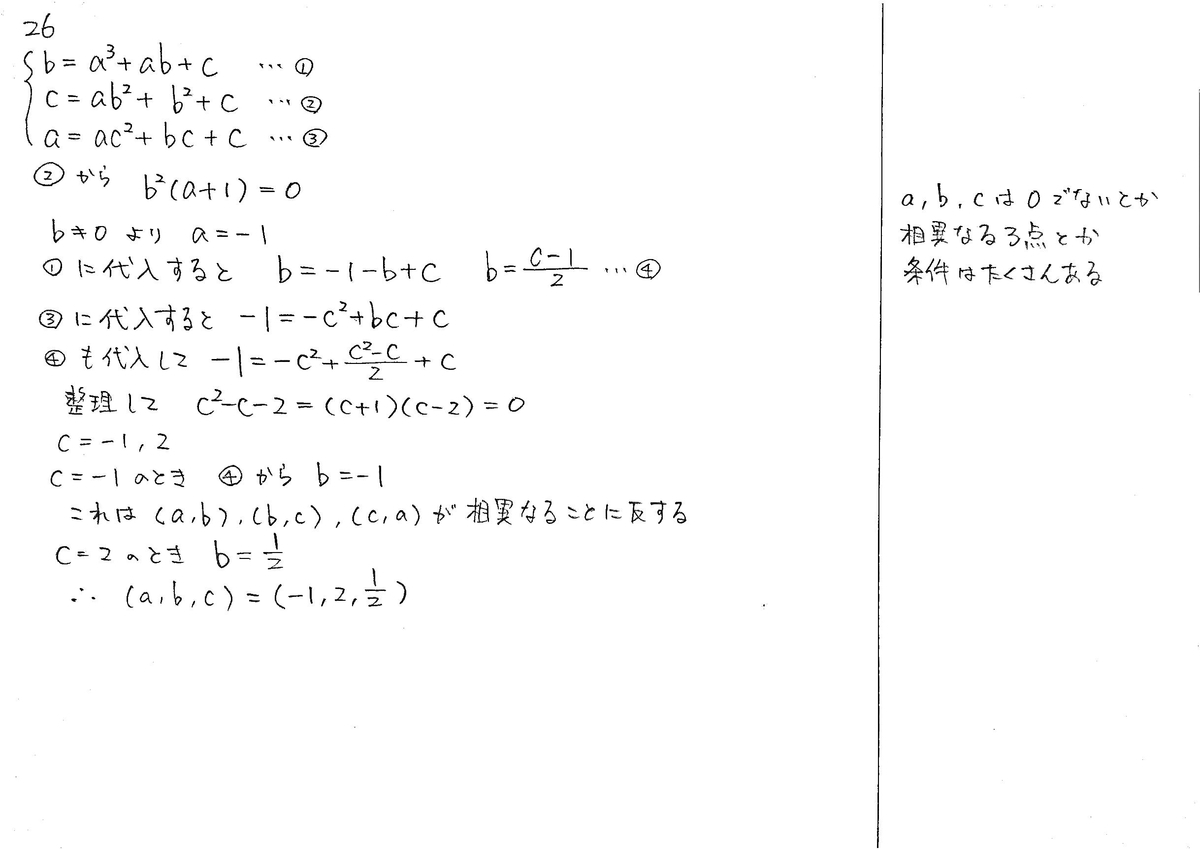 26
b = a³ + ab + c … ①
c = ab² + b² + c … ②
a = ac² + bc + c … ③
② から b²(a+1) = 0
b≠0 より a = -1
① に代入すると b = -1 - b + c b = (c-1)/2 … ④
③ に代入すると -1 = -c² + bc + c
④ も代入して -1 = -c² + (c²-c)/2 + c
整理して c² - c - 2 = (c+1)(c-2) = 0
c = -1, 2
c = -1 のとき ④ から b = -1
これは (a,b), (b,c), (c,a) が 相異なることに反する
c = 2 のとき b = 1/2
∴ (a,b,c) = (-1, 2, 1/2)
a, b, c は 0 でないとか
相異なる3点とか
条件はたくさんある